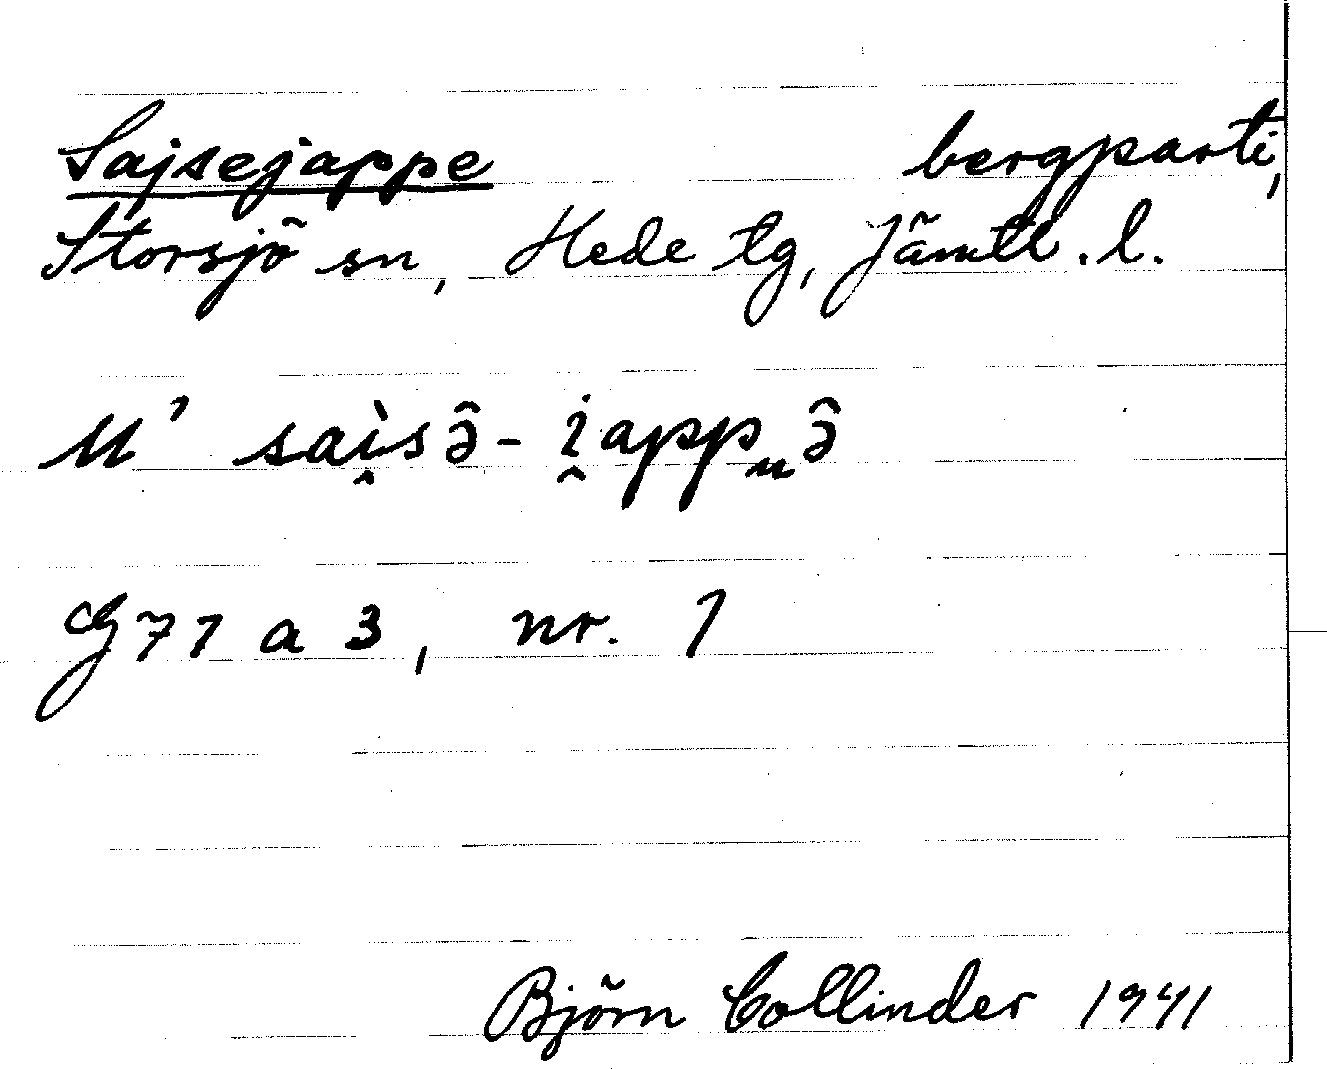 Sajsejappe bergparti,
Storsjö sn, Hede tg, Jämtl. l.
M' sai̯sə̂- i̯appᵤə̂
G 71 a 3, nr. 1
Björn Collinder 1941